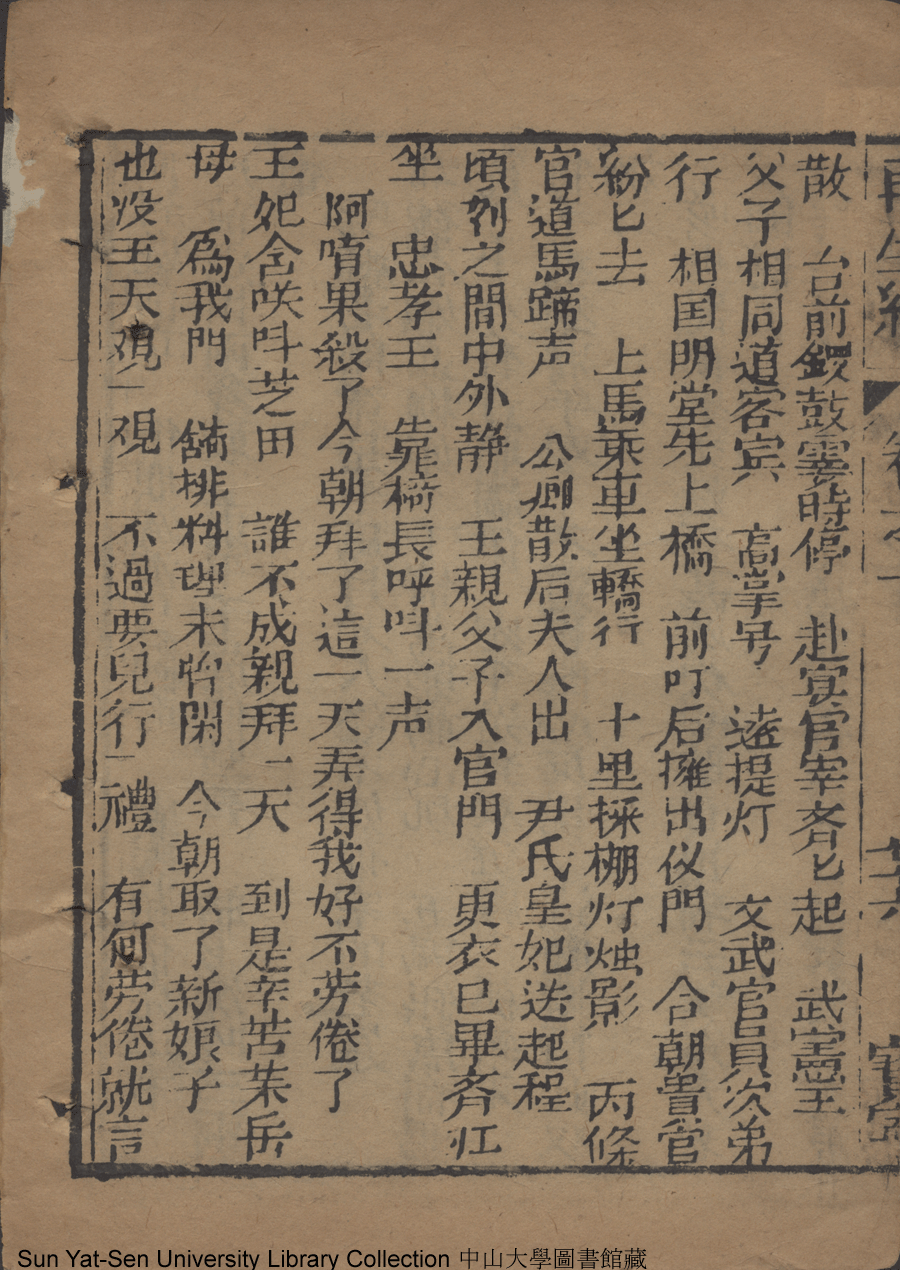 再生緣 卷之十 廿六 寶寧
散 台前鑼鼓霎時停 赴宴官宰齐匕起 武憲王
父子相同道客宾 高掌号 遠提灯 文武官員次弟
行 相国明堂先上橋 前叮后擁出仪門 合朝貴官
紛匕去 上馬乘車坐轎行 十里採棚灯烛影 丙條
官道馬蹄声 公卿散后夫人出 尹氏皇妃送起程
頃刻之間中外静 王親父子入官門 更衣巳畢齐㱏
坐 忠孝王 靠椅長呼呌一声
阿唷果殺了今朝拜了這一天弄得我好不劳倦了
王妃含咲呌芝田 誰不成親拜一天 到是辛苦某岳
母 爲我門 鋪排料理未偷閑 今朝取了新娘子
也没王天观一观 不過要兒行一禮 有何劳倦就言
Sun Yat-Sen University Library Collection 中山大學圖書館藏